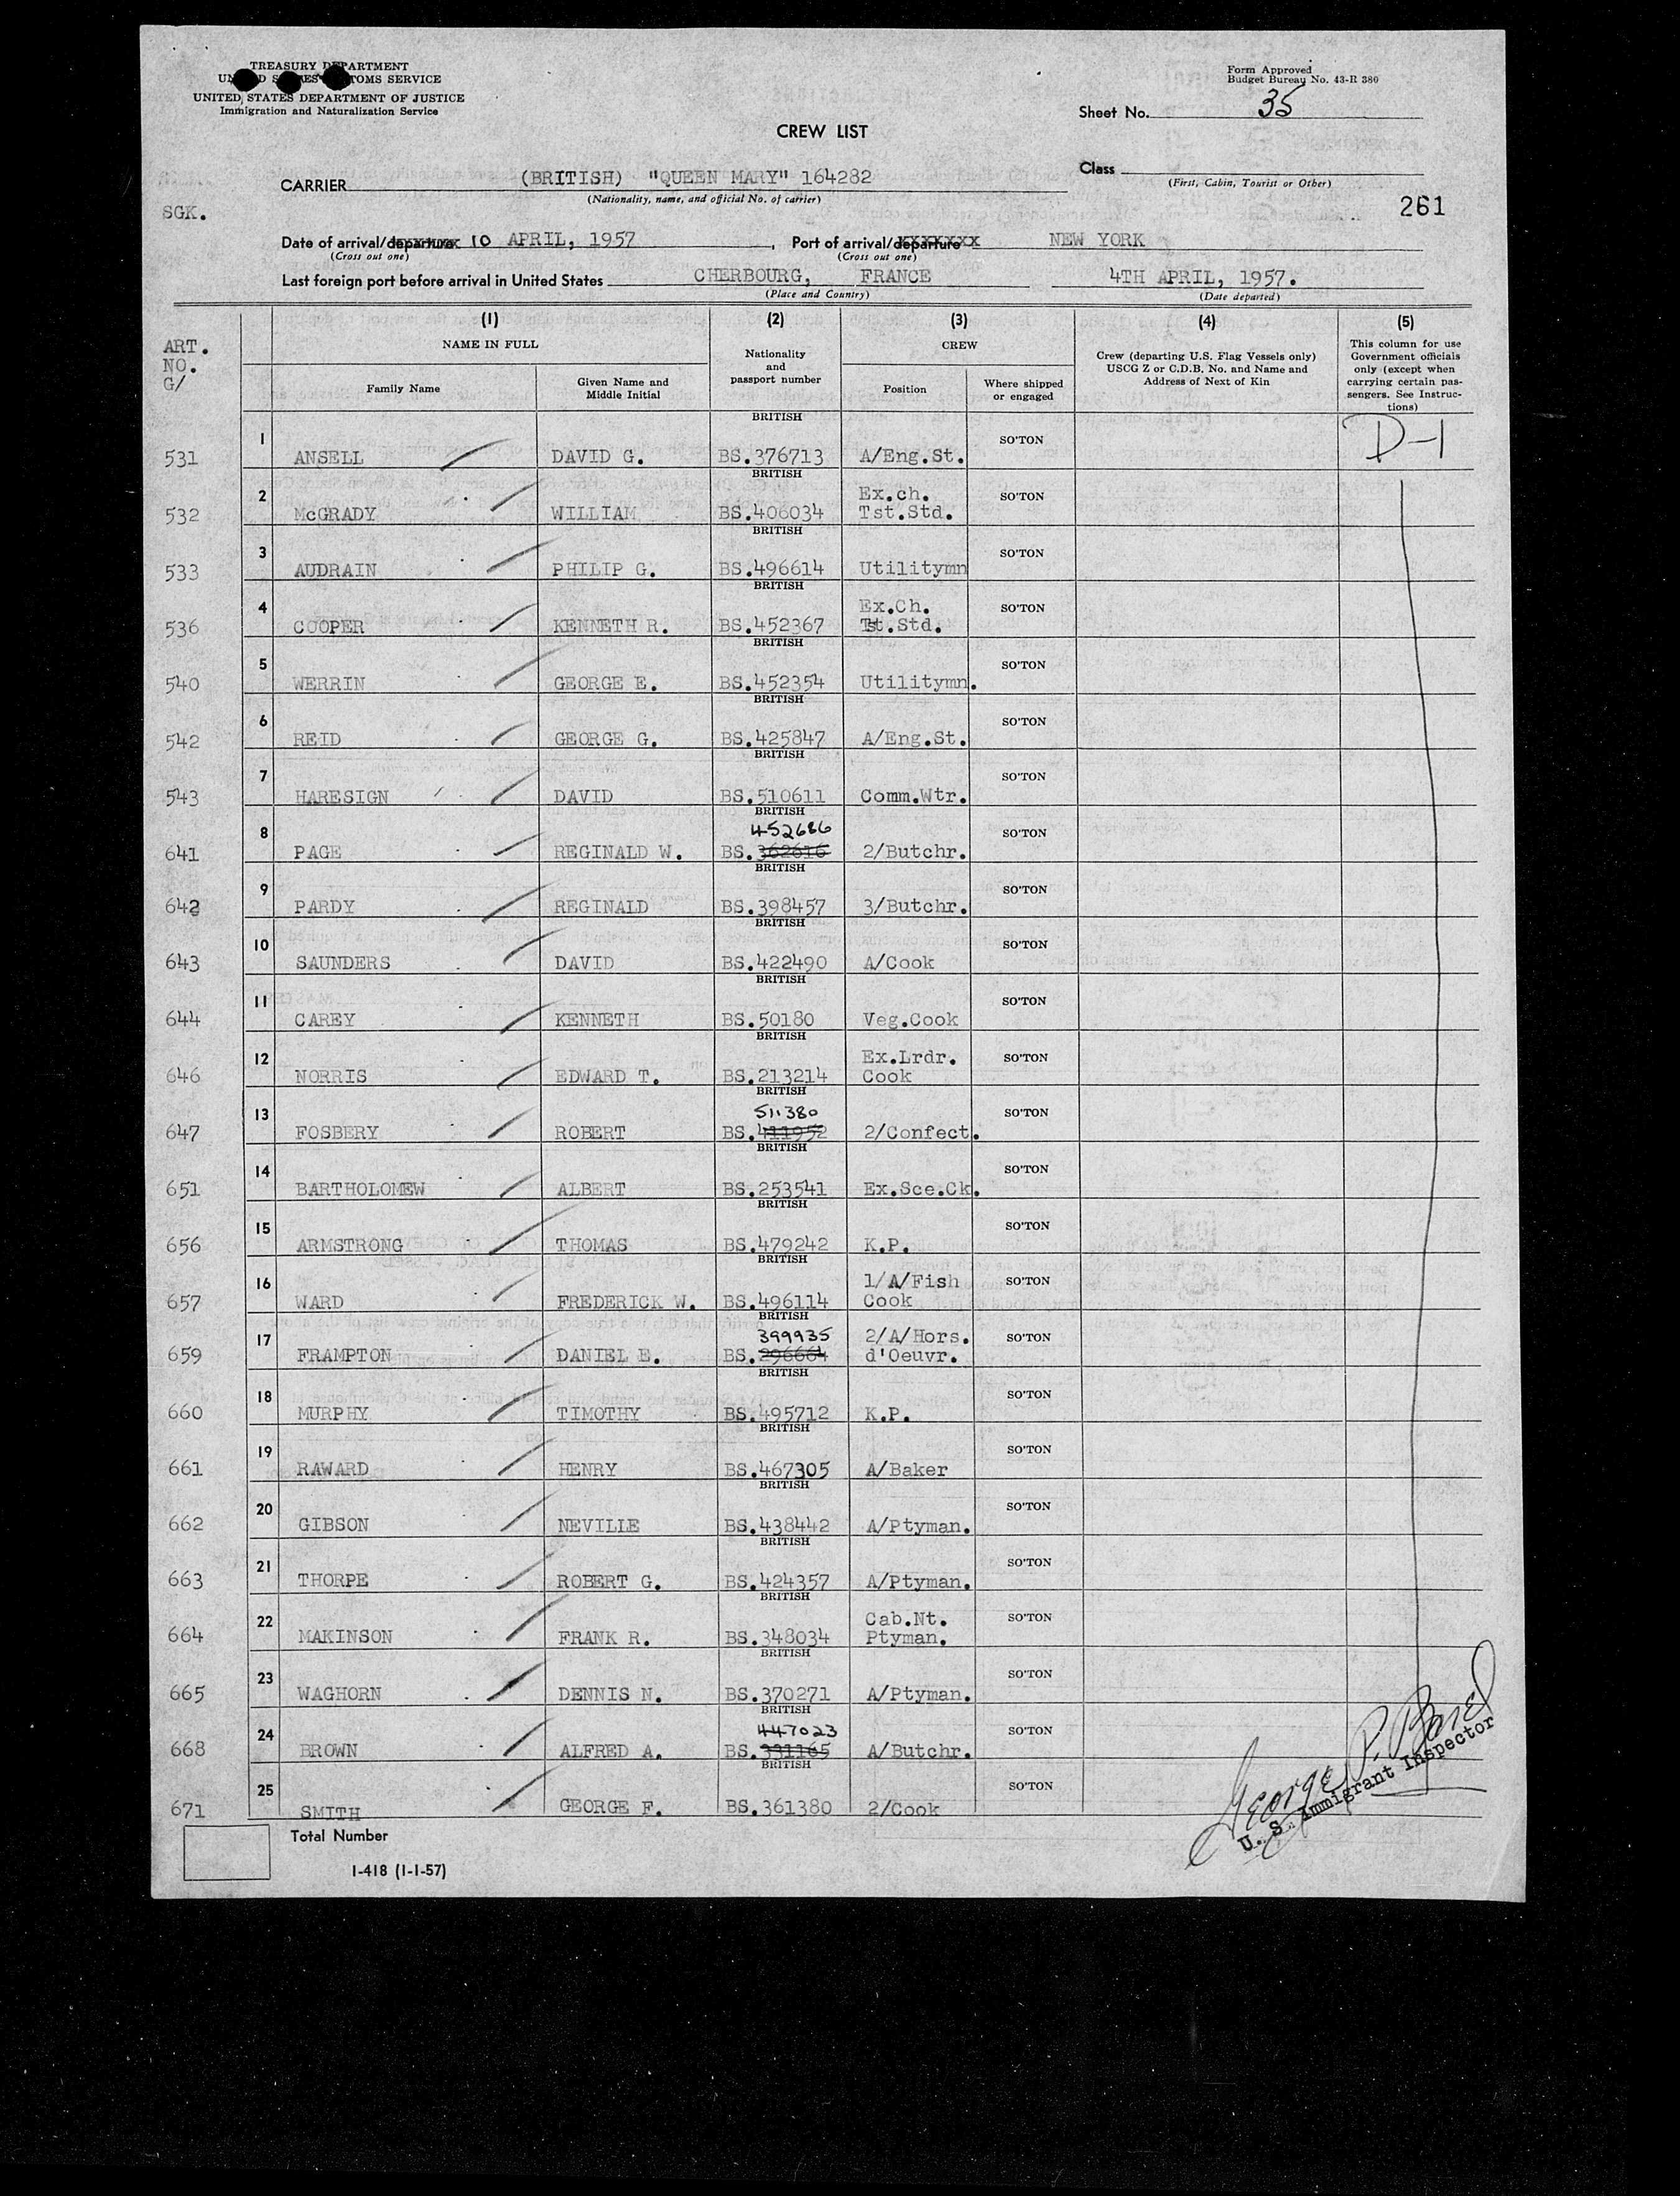 TREASURY DEPARTMENT
UNITED STATES CUSTOMS SERVICE
UNITED STATES DEPARTMENT OF JUSTICE
Immigration and Naturalization Service
Form Approved
Budget Bureau No. 43-R 380
Sheet No. 35
CREW LIST
Class
(First, Cabin, Tourist or Other)
CARRIER (BRITISH) "QUEEN MARY" 164282
(Nationality, name, and official No. of carrier)
SGK.
261
Date of arrival/departure 10 APRIL, 1957, Port of arrival/departure NEW YORK
(Cross out one) (Cross out one)
Last foreign port before arrival in United States CHERBOURG, FRANCE 4TH APRIL, 1957.
(Place and Country) (Date departed)
ART. NO. G/
(1) (2) (3) (4) (5)
NAME IN FULL
Family Name
Given Name and Middle Initial
Nationality and passport number
CREW
Position
Where shipped or engaged
Crew (departing U.S. Flag Vessels only) USCG Z or C.D.B. No. and Name and Address of Next of Kin
This column for use Government officials only (except when carrying certain passengers. See Instructions)
531 1 ANSELL DAVID G. BRITISH BS.376713 A/Eng.St. SO'TON D-1
532 2 McGRADY WILLIAM BRITISH BS.406034 Ex.ch. Tst.Std. SO'TON
533 3 AUDRAIN PHILIP G. BRITISH BS.496614 Utilitymn SO'TON
536 4 COOPER KENNETH R. BRITISH BS.452367 Ex.Ch. Tst.Std. SO'TON
540 5 WERRIN GEORGE E. BRITISH BS.452354 Utilitymn. SO'TON
542 6 REID GEORGE G. BRITISH BS.425847 A/Eng.St. SO'TON
543 7 HARESIGN DAVID BRITISH BS.510611 Comm.Wtr. SO'TON
641 8 PAGE REGINALD W. BRITISH 452686 BS.362616 2/Butchr. SO'TON
642 9 PARDY REGINALD BRITISH BS.398457 3/Butchr. SO'TON
643 10 SAUNDERS DAVID BRITISH BS.422490 A/Cook SO'TON
644 11 CAREY KENNETH BRITISH BS.50180 Veg.Cook SO'TON
646 12 NORRIS EDWARD T. BRITISH BS.213214 Ex.Lrdr. Cook SO'TON
647 13 FOSBERY ROBERT BRITISH 511380 BS.411952 2/Confect. SO'TON
651 14 BARTHOLOMEW ALBERT BRITISH BS.253541 Ex.Sce.Ck. SO'TON
656 15 ARMSTRONG THOMAS BRITISH BS.479242 K.P. SO'TON
657 16 WARD FREDERICK W. BRITISH BS.496114 1/A/Fish Cook SO'TON
659 17 FRAMPTON DANIEL E. BRITISH 399935 BS.296664 2/A/Hors. d'Oeuvr. SO'TON
660 18 MURPHY TIMOTHY BRITISH BS.495712 K.P. SO'TON
661 19 RAWARD HENRY BRITISH BS.467305 A/Baker SO'TON
662 20 GIBSON NEVILLE BRITISH BS.438442 A/Ptyman. SO'TON
663 21 THORPE ROBERT G. BRITISH BS.424357 A/Ptyman. SO'TON
664 22 MAKINSON FRANK R. BRITISH BS.348034 Cab.Nt. Ptyman. SO'TON
665 23 WAGHORN DENNIS N. BRITISH BS.370271 A/Ptyman. SO'TON
668 24 BROWN ALFRED A. BRITISH 447023 BS.331165 A/Butchr. SO'TON
671 25 SMITH GEORGE F. BRITISH BS.361380 2/Cook SO'TON
George P.
U. S. Immigrant Inspector
Total Number
I-418 (1-1-57)